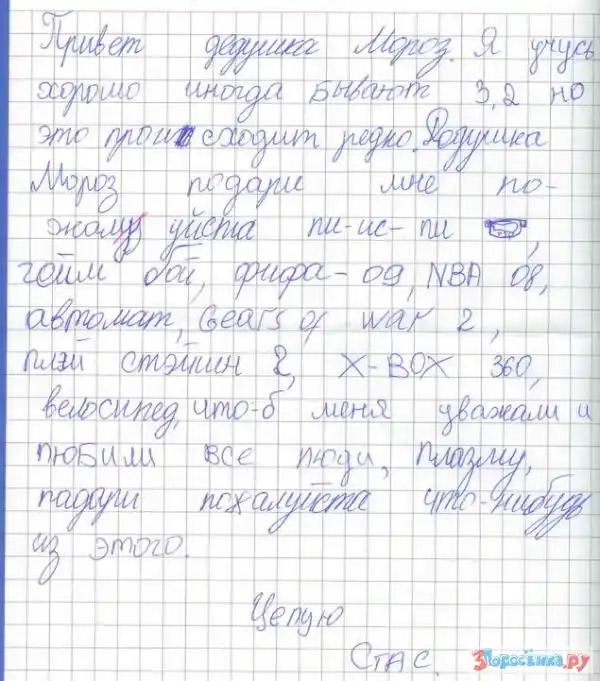 Привет дедушка Мороз. Я учусь
хорошо иногда бывают 3,2 но
это происходит редко. Дедушка
Мороз подари мне по-
жалуйста пи-ис-пи ,
гейм бой, фифа-09, NBA 08,
автомат, Gears of war 2,
плэй стэйшин 2, X-BOX 360,
велосипед, что-б меня уважали и
любили все люди, плазму,
падари пожалуйста что-нибудь
из этого.
Целую
Стас.
3Поросёнка.ру